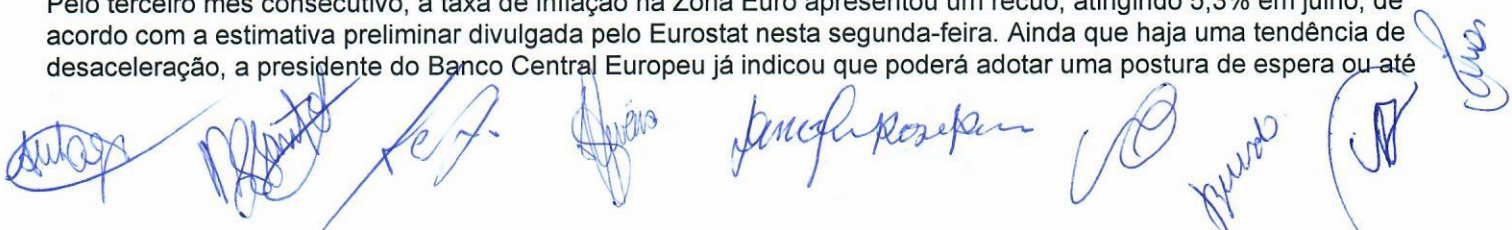 Pelo terceiro mês consecutivo, a taxa de inflação na Zona Euro apresentou um recuo, atingindo 5,3% em julho, de
acordo com a estimativa preliminar divulgada pelo Eurostat nesta segunda-feira. Ainda que haja uma tendência de
desaceleração, a presidente do Banco Central Europeu já indicou que poderá adotar uma postura de espera ou até